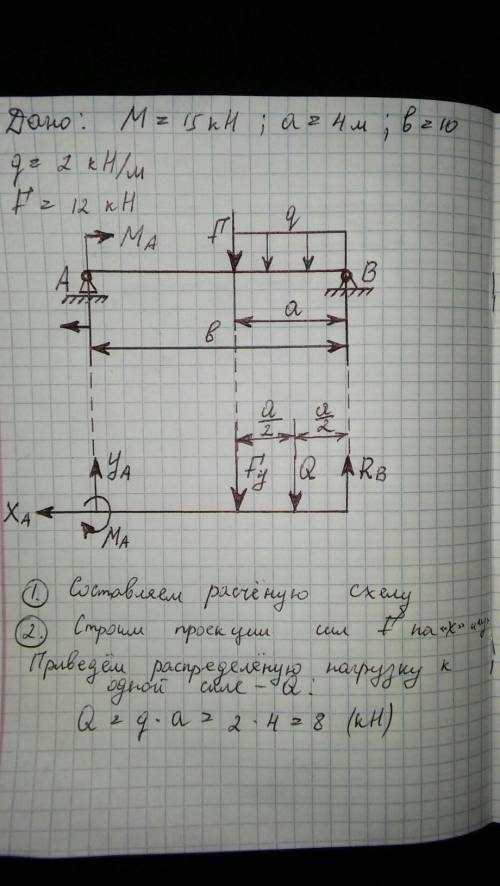 Дано: М = 15 кН ; а = 4 м ; в = 10
q = 2 кН/м
F = 12 кН
MA F q
A B
a
в
a/2 a/2
YA Fy Q RB
XA MA
1. Составляем расчёную схему
2. Строим проекции сил F на "х" и "у"
Приведём распределёную нагрузку к
одной силе - Q:
Q = q · a = 2 · 4 = 8 (кН)